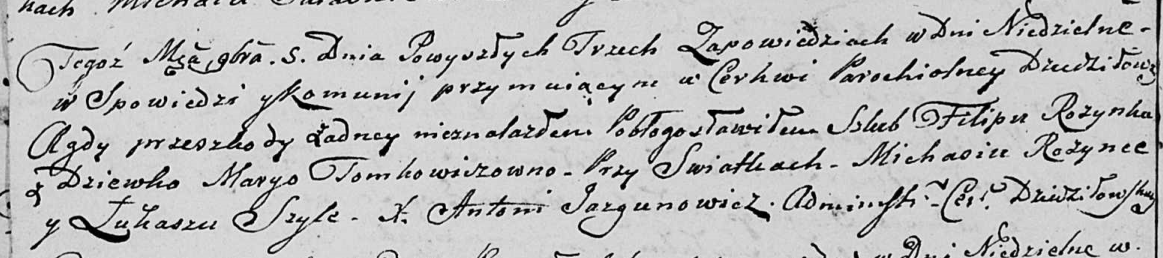 nach Michała
Tegoż Msca 9bra. 5. Dnia Powyszłych Trzech Zapowiedziach w Dni Niedzielne-
w Spowiedzi y Komunij przymuiącym w Cerkwi Parochiolney Dziedziłowy
A gdy przeszkody żadney nieznalazłem Pobłogosławiłem Szlub Filipu Rozynka
z Dziewko Maryo Tomkowiczowno - Przy Swiatkach - Michasiu Rozynce
y Łukaszu Szyle - X. Antoni Jazgunowicz. Administr. Cer. Dziedziłowsky
w Dni Niedzielne w.